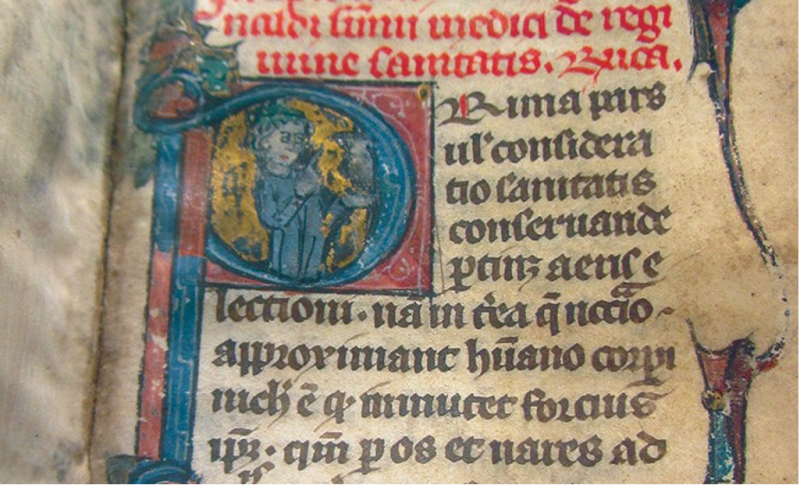 naldi sũmi medici de regi
mine sanitatis. Ru͡ca.
Rima pars
ul' considera
tio sanitatis
conseruande
ꝑtinꝫ aeris e
lectioni. nã in
approximant hũano corꝑi
nich' ẽ qͥ minutet forcius
ipꝫ. ꝑ os et nares ad